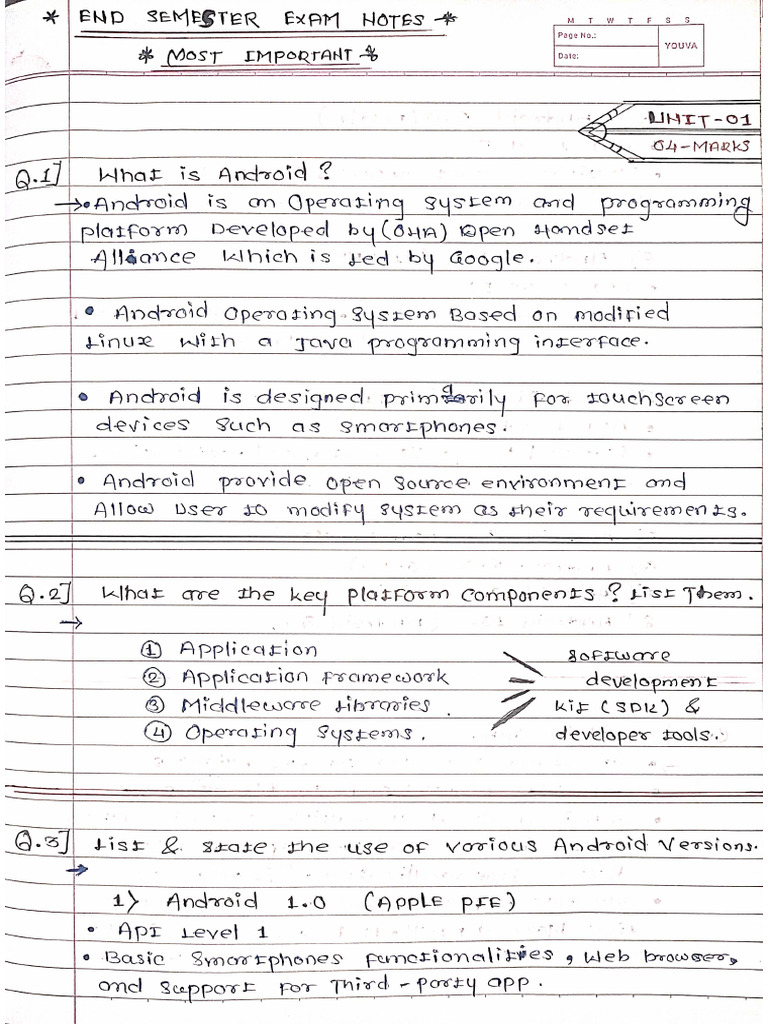 * END SEMESTER EXAM NOTES *
* MOST IMPORTANT *
M T W T F S S
Page No.:
Date:
YOUVA
UNIT-01
04-MARKS
Q.1] What is Android ?
→ • Android is an Operating System and programming
platform Developed by (OHA) Open Handset
Alliance Which is Led by Google.
• Android Operating System Based on modified
Linux With a Java programming interface.
• Android is designed primarily for touchscreen
devices such as smartphones.
• Android provide open source environment and
Allow User to modify system as their requirements.
Q.2] What are the key platform components ? List Them.
→
① Application
② Application Framework
③ Middleware Libraries
④ Operating Systems.
Software
development
kit (SDK) &
developer tools.
Q.3] List & State the use of various Android Versions.
→
1) Android 1.0 (APPLE PIE)
• API Level 1
• Basic Smartphones functionalities, Web browser,
and support for Third-party app.